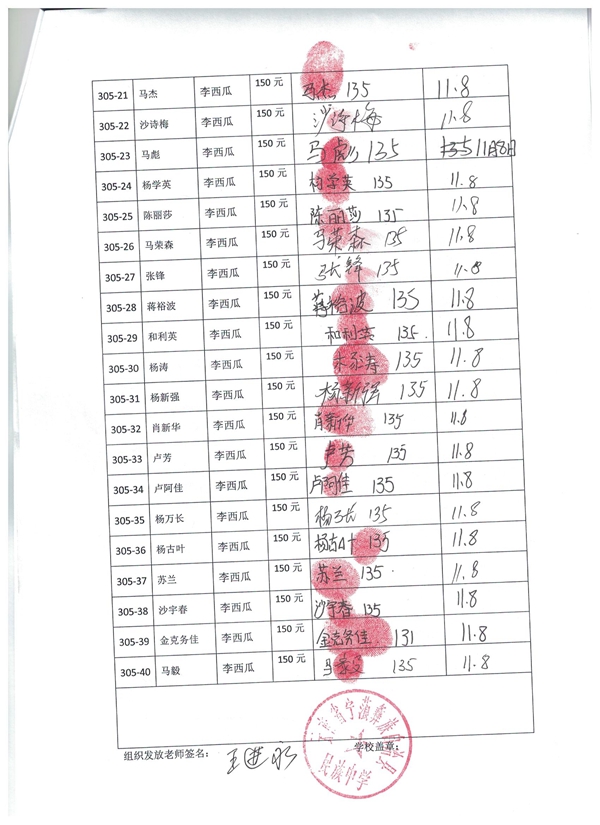 305-21 马杰 李西瓜 150 元 马杰 135 11.8
305-22 沙诗梅 李西瓜 150 元 沙诗梅 11.8
305-23 马彪 李西瓜 150 元 马彪 135 135 11月8日
305-24 杨学英 李西瓜 150 元 杨学英 135 11.8
305-25 陈丽莎 李西瓜 150 元 陈丽莎 135 11.8
305-26 马荣森 李西瓜 150 元 马荣森 135 11.8
305-27 张锋 李西瓜 150 元 张锋 135 11.8
305-28 蒋裕波 李西瓜 150 元 蒋裕波 135 11.8
305-29 和利英 李西瓜 150 元 和利英 135. 11.8
305-30 杨涛 李西瓜 150 元 135 11.8
305-31 杨新强 李西瓜 150 元 杨新强 135 11.8
305-32 肖新华 李西瓜 150 元 肖新华 135 11.8
305-33 卢芳 李西瓜 150 元 卢芳 135 11.8
305-34 卢阿佳 李西瓜 150 元 卢阿佳 135 11.8
305-35 杨万长 李西瓜 150 元 杨万长 135 11.8
305-36 杨古叶 李西瓜 150 元 杨古叶 135 11.8
305-37 苏兰 李西瓜 150 元 苏兰 135. 11.8
305-38 沙宇春 李西瓜 150 元 沙宇春 135 11.8
305-39 金克务佳 李西瓜 150 元 金克务佳 131 11.8
305-40 马毅 李西瓜 150 元 135 11.8
组织发放老师签名： 王进永 学校盖章：
云南省宁蒗彝族自治县
民族中学